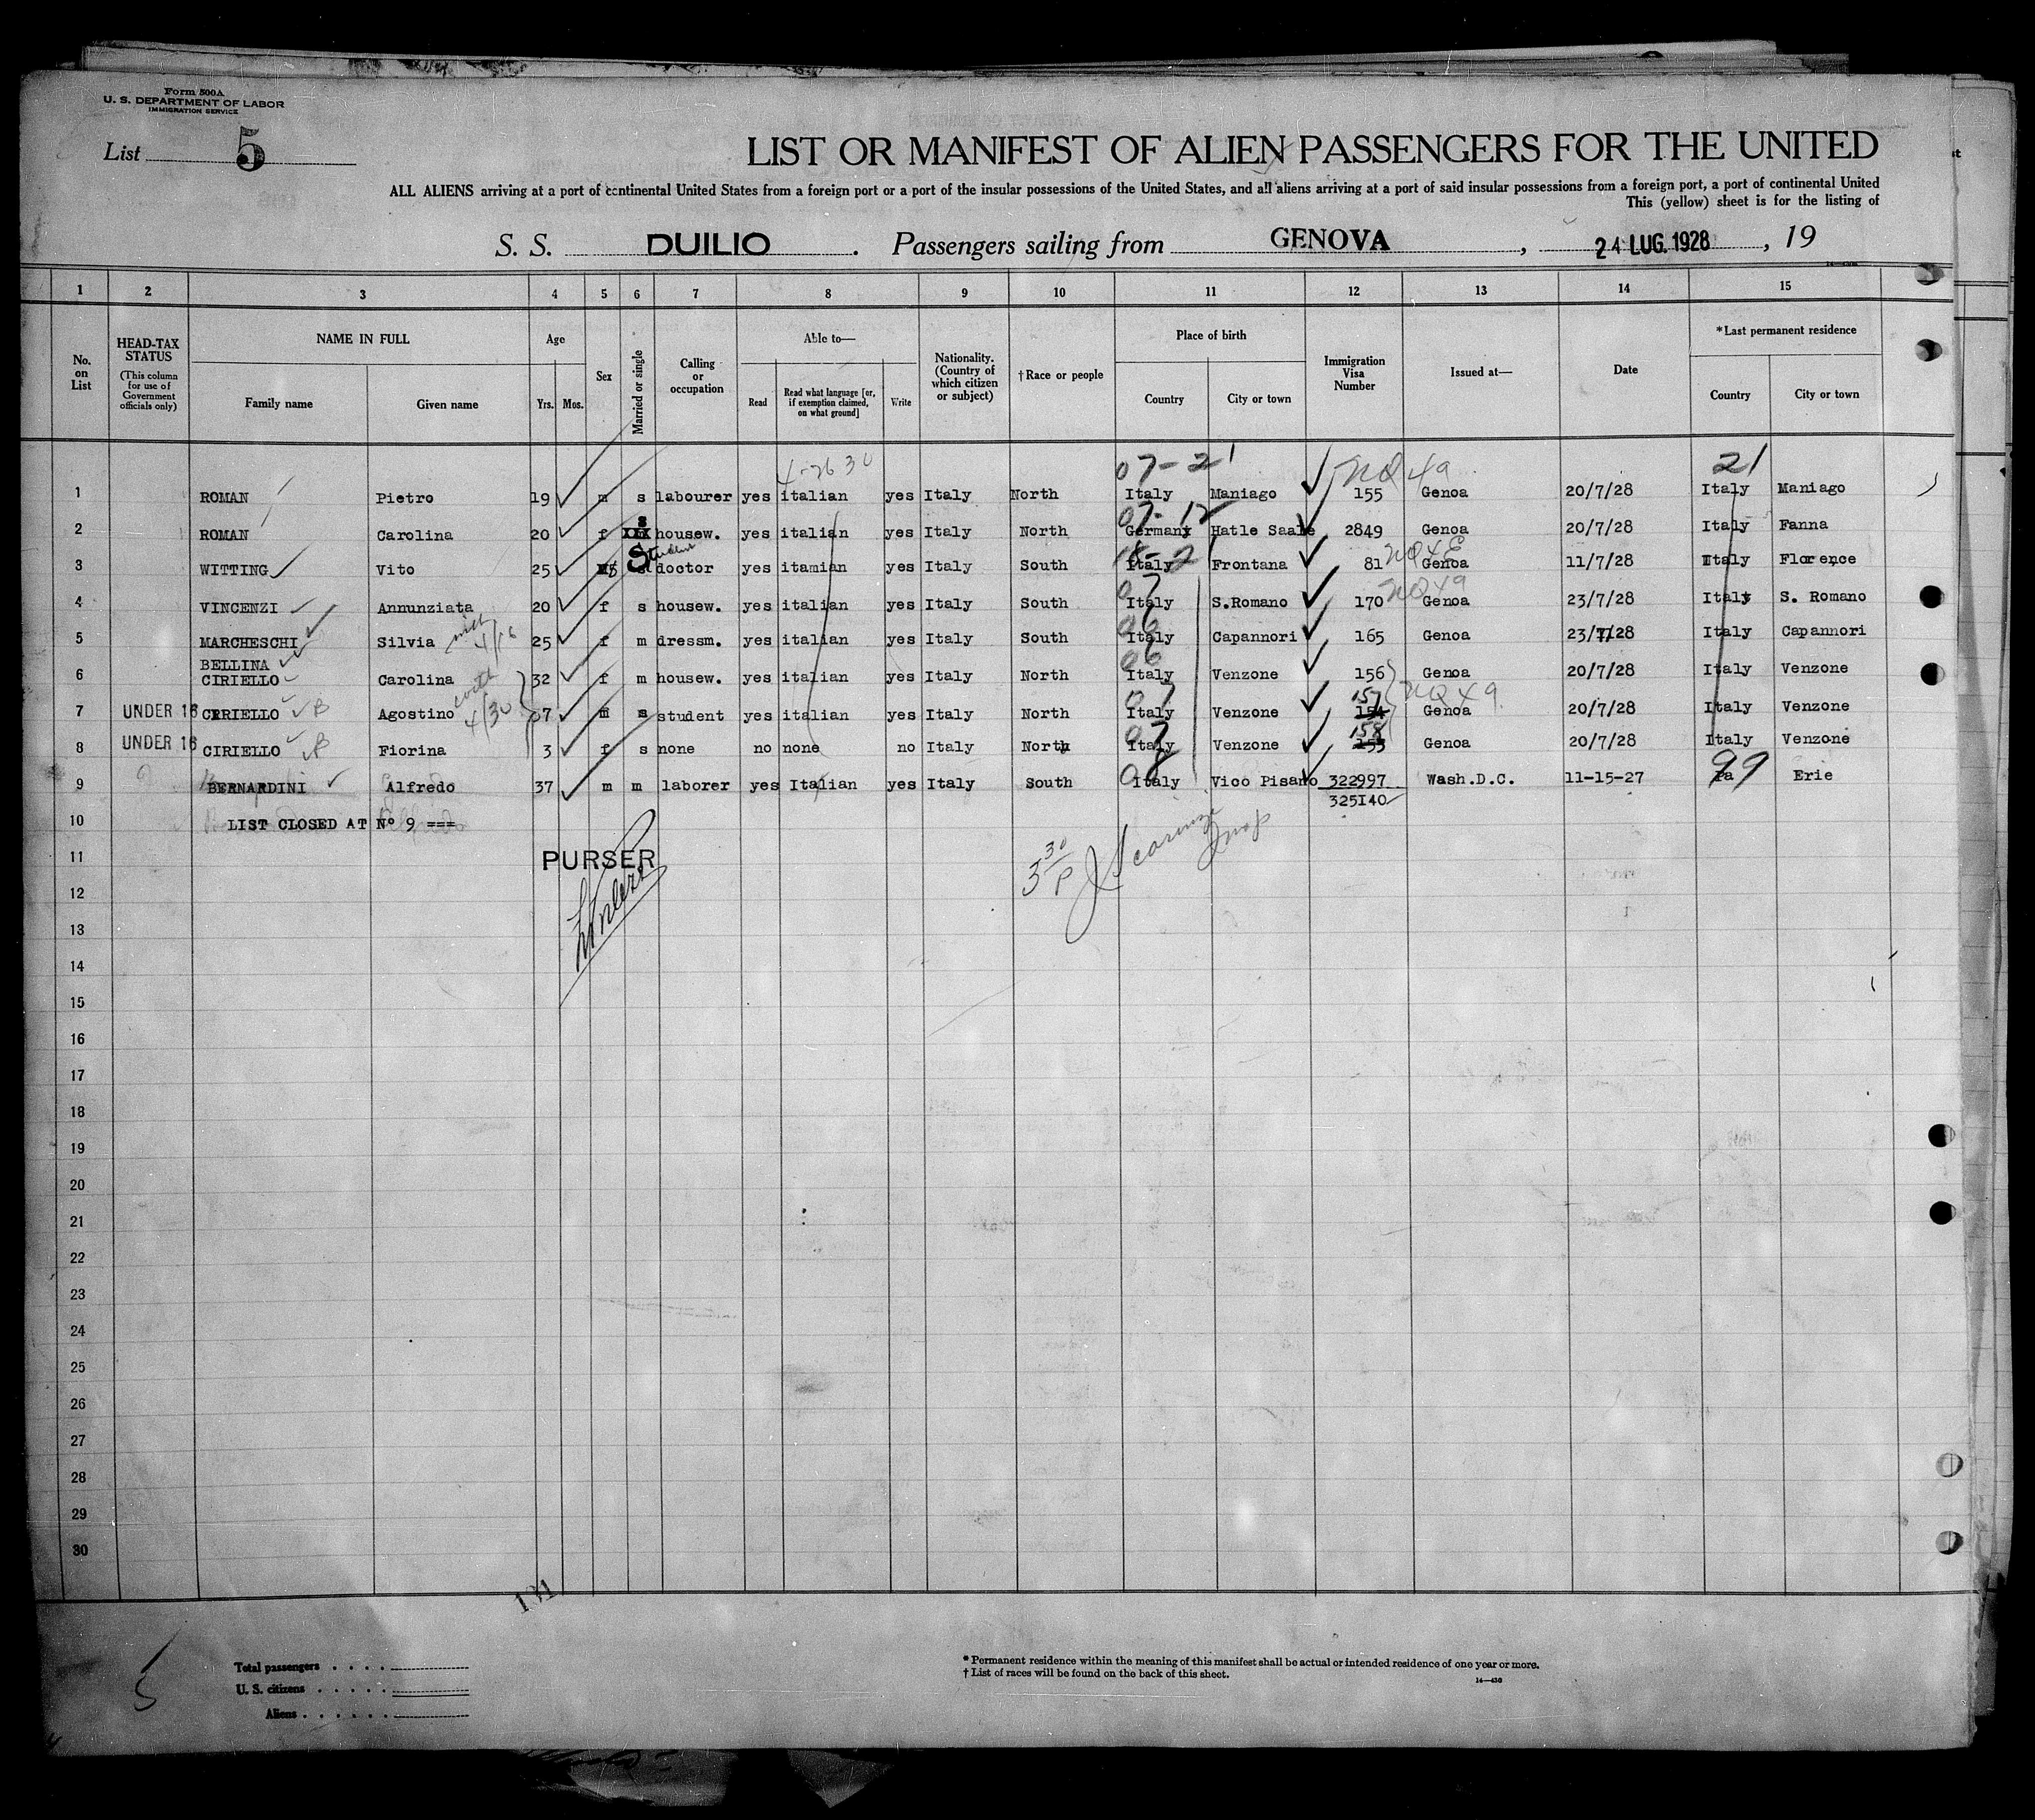 Form 500A
U. S. DEPARTMENT OF LABOR
IMMIGRATION SERVICE
List 5
LIST OR MANIFEST OF ALIEN PASSENGERS FOR THE UNITED
ALL ALIENS arriving at a port of continental United States from a foreign port or a port of the insular possessions of the United States, and all aliens arriving at a port of said insular possessions from a foreign port, a port of continental United
This (yellow) sheet is for the listing of
S. S. DUILIO . Passengers sailing from GENOVA , 24 LUG. 1928 , 19
1 2 3 4 5 6 7 8 9 10 11 12 13 14 15
No. on List
HEAD-TAX STATUS (This column for use of Government officials only)
NAME IN FULL
Family name Given name
Age
Yrs. Mos.
Sex
Married or single
Calling or occupation
Able to—
Read Read what language [or, if exemption claimed, on what ground] Write
Nationality. (Country of which citizen or subject)
†Race or people
Place of birth
Country City or town
Immigration Visa Number
Issued at—
Date
*Last permanent residence
Country City or town
4-2630 07-21 NQ 49 21
1 ROMAN Pietro 19 m s labourer yes italian yes Italy North Italy Maniago 155 Genoa 20/7/28 Italy Maniago
07-12
2 ROMAN Carolina 20 f s housew. yes italian yes Italy North Germany Hatle Saale 2849 Genoa 20/7/28 Italy Fanna
Student NQ4E
3 WITTING Vito 25 s doctor yes itamian yes Italy South Italy Frontana 81 Genoa 11/7/28 Italy Florence
07 NQ49
4 VINCENZI Annunziata 20 f s housew. yes italian yes Italy South Italy S.Romano 170 Genoa 23/7/28 Italy S. Romano
06
5 MARCHESCHI Silvia 4/16 25 f m dressm. yes italian yes Italy South Italy Capannori 165 Genoa 23/7/28 Italy Capannori
BELLINA 06
6 CIRIELLO Carolina with 4/30 32 f m housew. yes italian yes Italy North Italy Venzone 156 Genoa 20/7/28 Italy Venzone
07 157 NQ 49
7 UNDER 16 CIRIELLO Agostino 07 m s student yes italian yes Italy North Italy Venzone 154 Genoa 20/7/28 Italy Venzone
07 158
8 UNDER 16 CIRIELLO Fiorina 3 f s none no none no Italy North Italy Venzone 153 Genoa 20/7/28 Italy Venzone
08 99
9 BERNARDINI Alfredo 37 m m laborer yes Italian yes Italy South Italy Vico Pisano 322997 Wash.D.C. 11-15-27 Pa Erie
325140
10 LIST CLOSED AT Nº 9 ===
11 PURSER
3 30 P
12
13
14
15
16
17
18
19
20
21
22
23
24
25
26
27
28
29
30
131
5
Total passengers
U. S. citizens
Aliens
* Permanent residence within the meaning of this manifest shall be actual or intended residence of one year or more.
† List of races will be found on the back of this sheet.
14—430